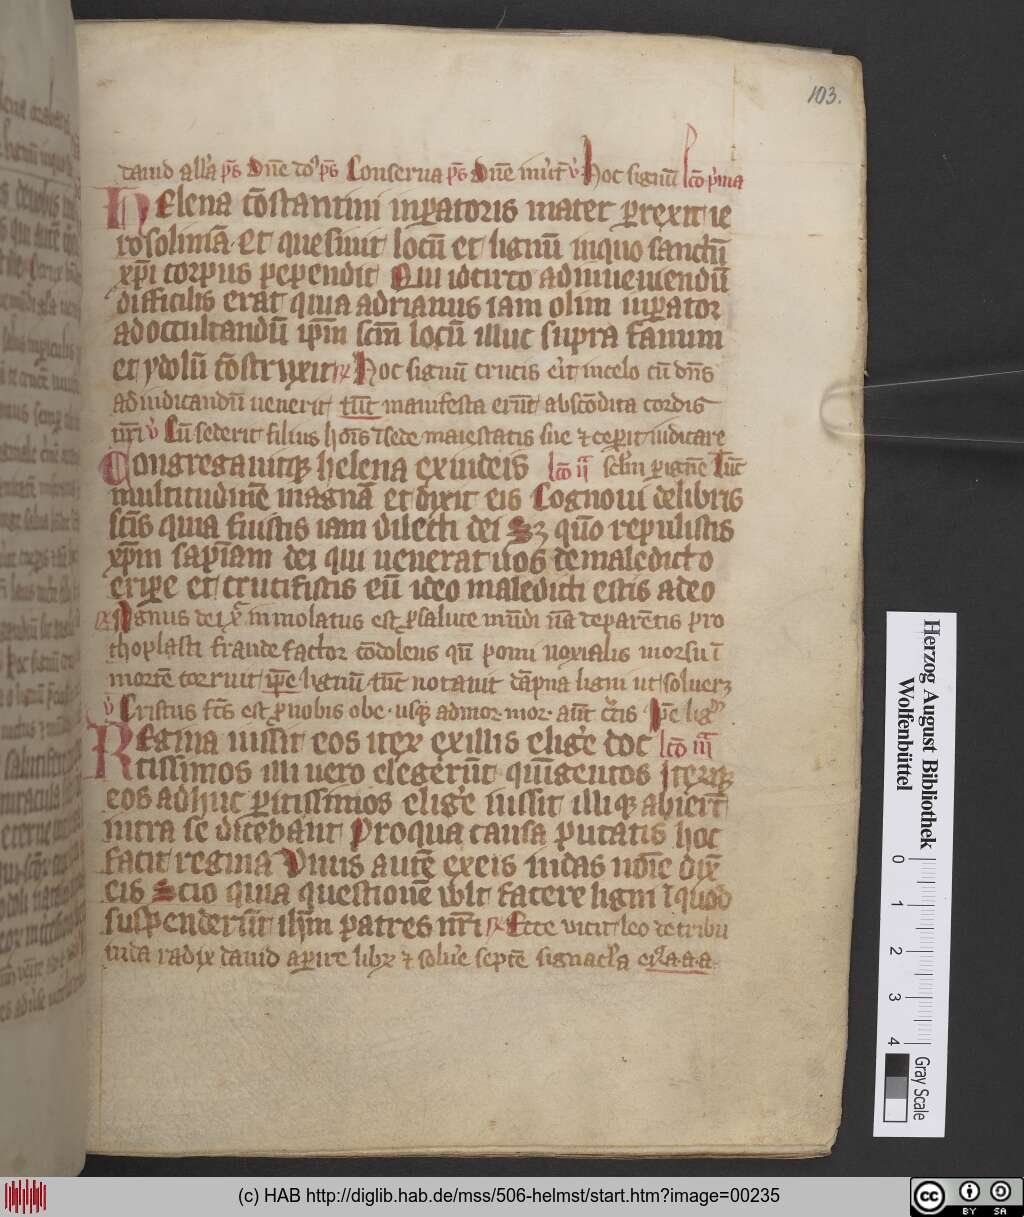 103.
dauid all'a ps Dne dns ps Conserua ps Dne in uirt v Hoc signu lco p'ma
Helena co̅stantini inp̲atoris mater p̲rexit ie
rosolimā et quesiuit locū et lignū in quo sanctū
xp̄i corpus pependit Qui idcirco ad inueniendū
difficilis erat quia adrianus iam olim inp̲ator
ad occultandū ip̄m scm̄ locū illuc supra fanum
et ydolū co̅struxit R Hoc signū crucis er̄it in celo cū dn̄s
ad iudicandū uenerit tūc manifesta erūt abscōdita cordis
nr̄i v Cū sederit filius hois ī sede maiestatis sue ⁊ cep̲it iudicare
Congregauitq; helena ex iudeis lco ii seclm p̲ igne Tūc
multitudinē magnā et dixit eis Cognoui de libris
scīs quia fuistis iam dilecti dei Sꝫ qūo repulistis
xp̄m sapiām dei qui uenerat uos de maledicto
erip̲e et crucifixistis eū ideo maledicti estis adeo
R Agnus dei xc̄ immolatus est p̲ salute mūdi nā de parētis pro
thoplasti fraude factor cōdolens qn̄ pomi noxialis morsu ī
mortē corruit ip̄e lignū tūc notauit dāpna ligni ut solueꝫ
v Cristus fc̄s est p̲ nobis obe usq; ad mor mor aūt cr̄cis Ip̄e lig
Regina iussit eos iter̲ ex illis elig̲e doc lco iii
tissimos illi uero elegerūt quīgentos Iterq;
eos adhuc p̲itissimos elig̲e iussit illiq; abierūt
intra se dicebant Pro qua causa putatis hoc
facit regina Vnus autē ex eis iudas noīe dix̄
eis Scio quia questionē wlt facere ligni ī quod
suspenderūt ihm̄ patres nr̄i R Ecce uicit leo de tribu
iuda radix dauid ap̲ire libr̲ ⁊ solu'e septē signac'la ei' a a a.
Herzog August Bibliothek
Wolfenbüttel
0 1 2 3 4
Gray Scale
(c) HAB http://diglib.hab.de/mss/506-helmst/start.htm?image=00235
cc BY SA